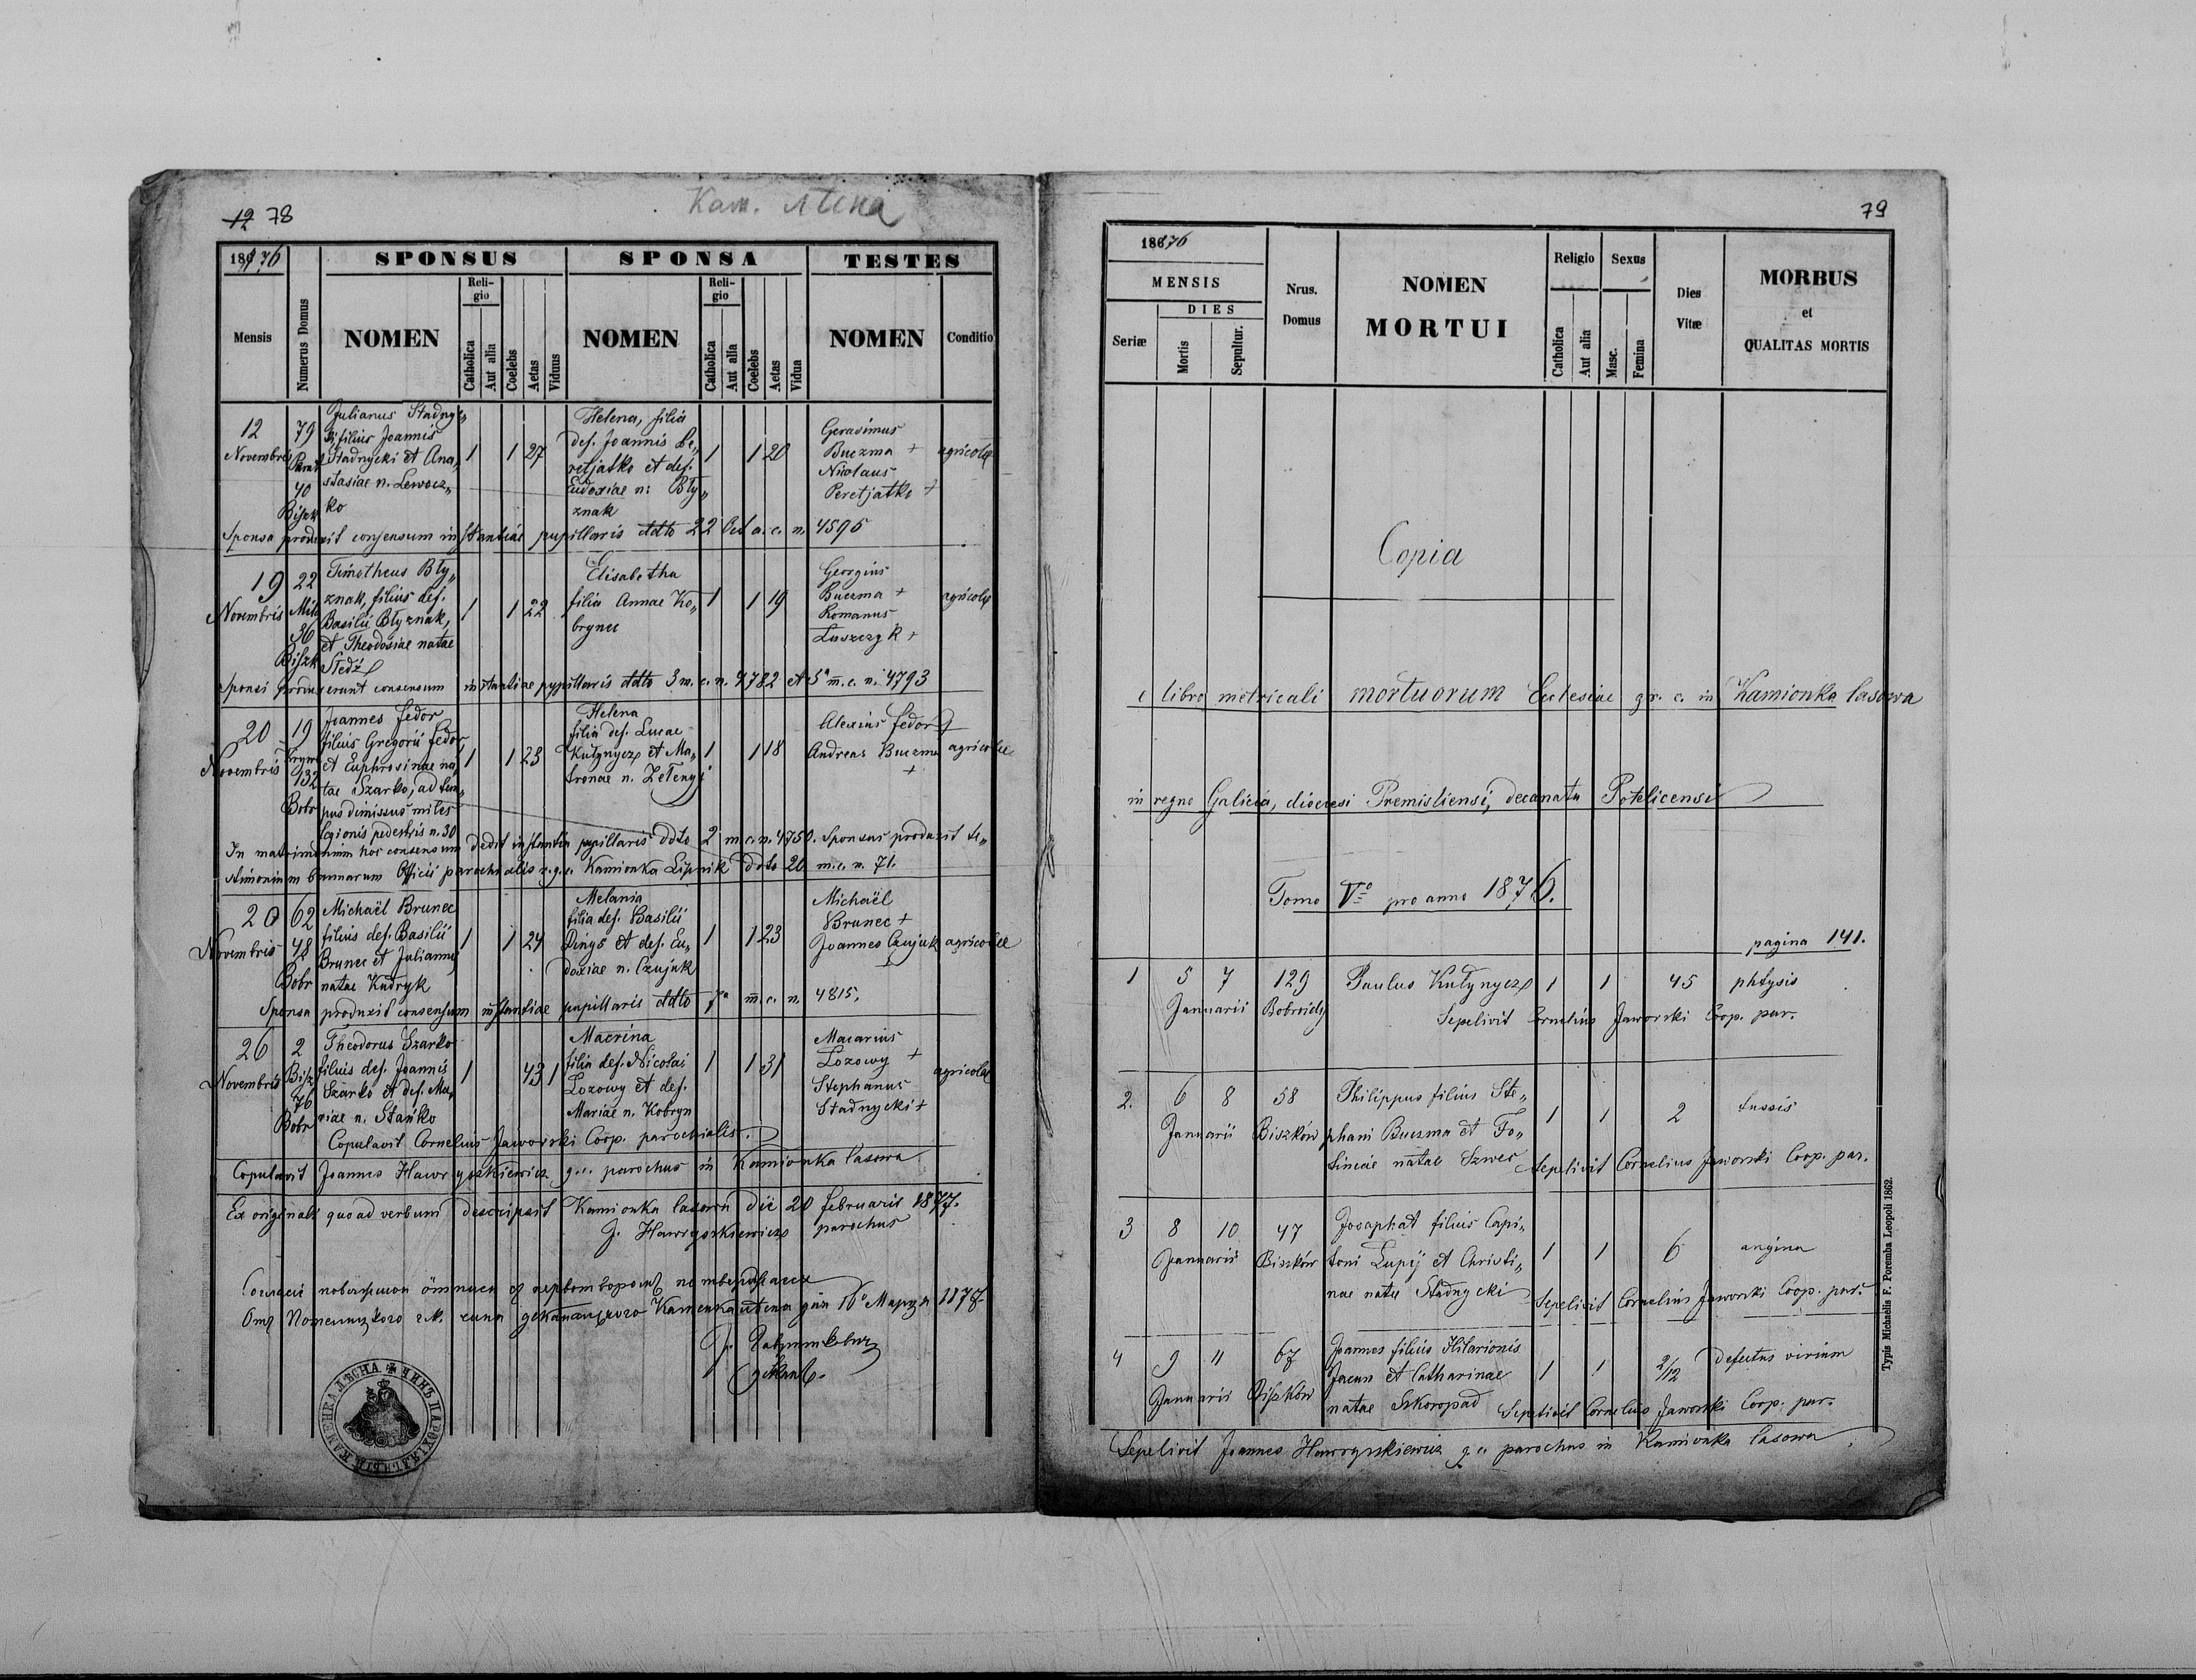 Кам. лѣсна
12 78
1876
SPONSUS
SPONSA
TESTES
Mensis
Numerus Domus
NOMEN
Religio
Catholica
Aut alia
Coelebs
Aetas
Viduus
NOMEN
Religio
Catholica
Aut alia
Coelebs
Aetas
Vidua
NOMEN
Conditio
12 Novembris
79
40 Biszk
Julianus Stadnyc„
ki, filius Joannis
Stadnycki et Ana„
stasiae n. Lewocz„
ko
1 1 27
Helena, filia
def. Joannis Pe„
retjatko et def.
Eudoxiae n: Bły„
znak
1 1 20
Gerasimus
Buczma +
Nicolaus
Peretjatko +
agricolae
Sponsa produxit consensum instantiae pupillaris ddto 22 Oct a. c. n. 4595
19 Novembris
22
36 Biszk
Timotheus Bły„
znak, filius def.
Basilii Błyznak,
et Theodosiae natae
Sledź
1 1 22
Elisabetha
filia Annae Ko„
brynec
1 1 19
Georgius
Buczma +
Romanus
Luszczyk +
agricolae
Sponsi produxerunt consensum instantiae pupillaris ddto 3 m. c. n. 4782 et 5ª m. c. n. 4793
20 Novembris
19
132 Bobr
Joannes Fedor
filius Gregorii Fedor
et Euphrosinae na„
tae Szarko, ad tem„
pus dimissus miles
legionis pedestris n. 30
1 1 23
Helena
filia def. Lucae
Kułynycz et Ma„
tronae n. Zełenyj
1 1 18
Alexius Fedor +
Andreas Buczma
+
agricolae
In matrimonium hoc consensum dedit instantia pupillaris ddto 2 m. c. n. 4750. Sponsus produxit te„
stimonium bannorum Officii parochialis r. g. c. Kamionka Lipnik ddto 20 m. c. n. 71.
20 Novembris
62
48 Bobr
Michaël Brunec
filius def. Basilii
Brunec et Juliannae
natae Kudryk
1 1 24
Melania
filia def. Basilii
Dinys et def. Eu„
doxiae n. Czujuk
1 1 23
Michaël
Brunec +
Joannes Czujuk
+
agricolae
Sponsa produxit consensum instantiae pupillaris ddto 7ª m. c. n. 4815.
26 Novembris
2 Bisz
76 Bobr
Theodorus Szarko
filius def. Joannis
Szarko et def. Ma„
riae n. Stańko
1 43 1
Macrina
filia def. Nicolai
Lozowy et def.
Mariae n. Kobryn
1 1 31
Macarius
Lozowy +
Stephanus
Stadnycki +
agricolae
Copulavit Cornelius Jaworski Coop. parochialis.
Copulavit Joannes Hawryszkiewicz g. c. parochus in Kamionka lasowa
Ex originali quoad verbum descripsit Kamionka lasowa die 20 februarii 1877.
J. Hawryszkiewicz parochus
КАМЕНКА ЛѢСНА
79
1876
MENSIS
DIES
Seriæ
Mortis
Sepultur.
Nrus. Domus
NOMEN
MORTUI
Religio
Catholica
Aut alia
Sexus
Masc.
Femina
Dies
Vitæ
MORBUS
et
QUALITAS MORTIS
Copia
e libro metricali mortuorum Ecclesiae gr. c. in Kamionka lasowa
in regno Galicia, dioecesi Premisliensi, decanatu Potelicensi
Tomo Vº pro anno 1876.
pagina 141.
1 5 7 129 Paulus Kułynycz 1 1 45 phtysis
Januarii Bobroidy Sepelivit Cornelius Jaworski Coop. par.
2. 6 8 58 Philippus filius Ste„ 1 1 2 tussis
Januarii Biszków phani Buczma et Fo„
tineae natae Szwec Sepelivit Cornelius Jaworski Coop. par.
3 8 10 47 Josaphat filius Capi„
Januarii Biszków toni Lupij et Christi„ 1 1 6 angina
nae natae Stadnycki Sepelivit Cornelius Jaworski Coop. par.
4 9 11 67 Joannes filius Hilarionis
Jacun et Catharinae 1 1 2/12 defectus virium
Januarii Biszków natae Skoropad Sepelivit Cornelius Jaworski Coop. par.
Sepelivit Joannes Hawryszkiewicz g. c. parochus in Kamionka lasowa
Typis Michaëlis F. Poremba Leopoli 1862.